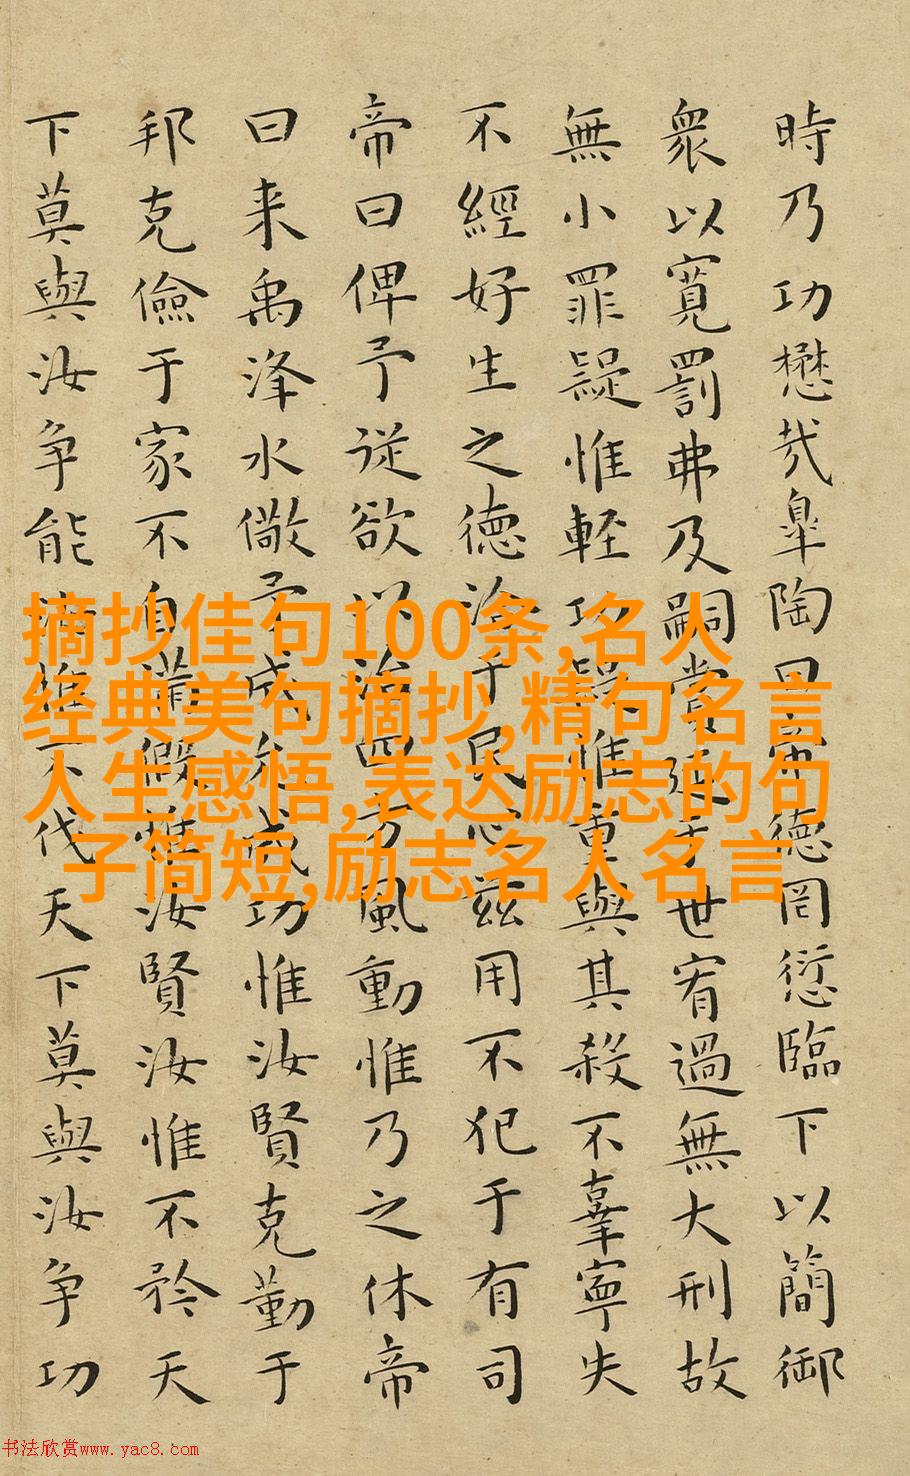 時乃功懋哉皐陶曰帝德罔愆臨下以簡御
衆以寬罰弗及嗣賞延于世宥過無大刑故
無小罪疑惟軽功疑惟重與其殺不辜寧失
不經好生之德洽于民心茲用不犯于有司
帝曰俾予從欲以治四方風動惟乃之休帝
曰来禹洚水儆予成允成功惟汝賢克勤于
邦克儉于家不自滿假惟汝賢汝惟不矜天
下莫與汝争能汝惟不伐天下莫與汝争功
摘抄佳句100条,名人
经典美句摘抄,精句名言
人生感悟,表达励志的句
子简短,励志名人名言
书法欣赏www.yac8.com